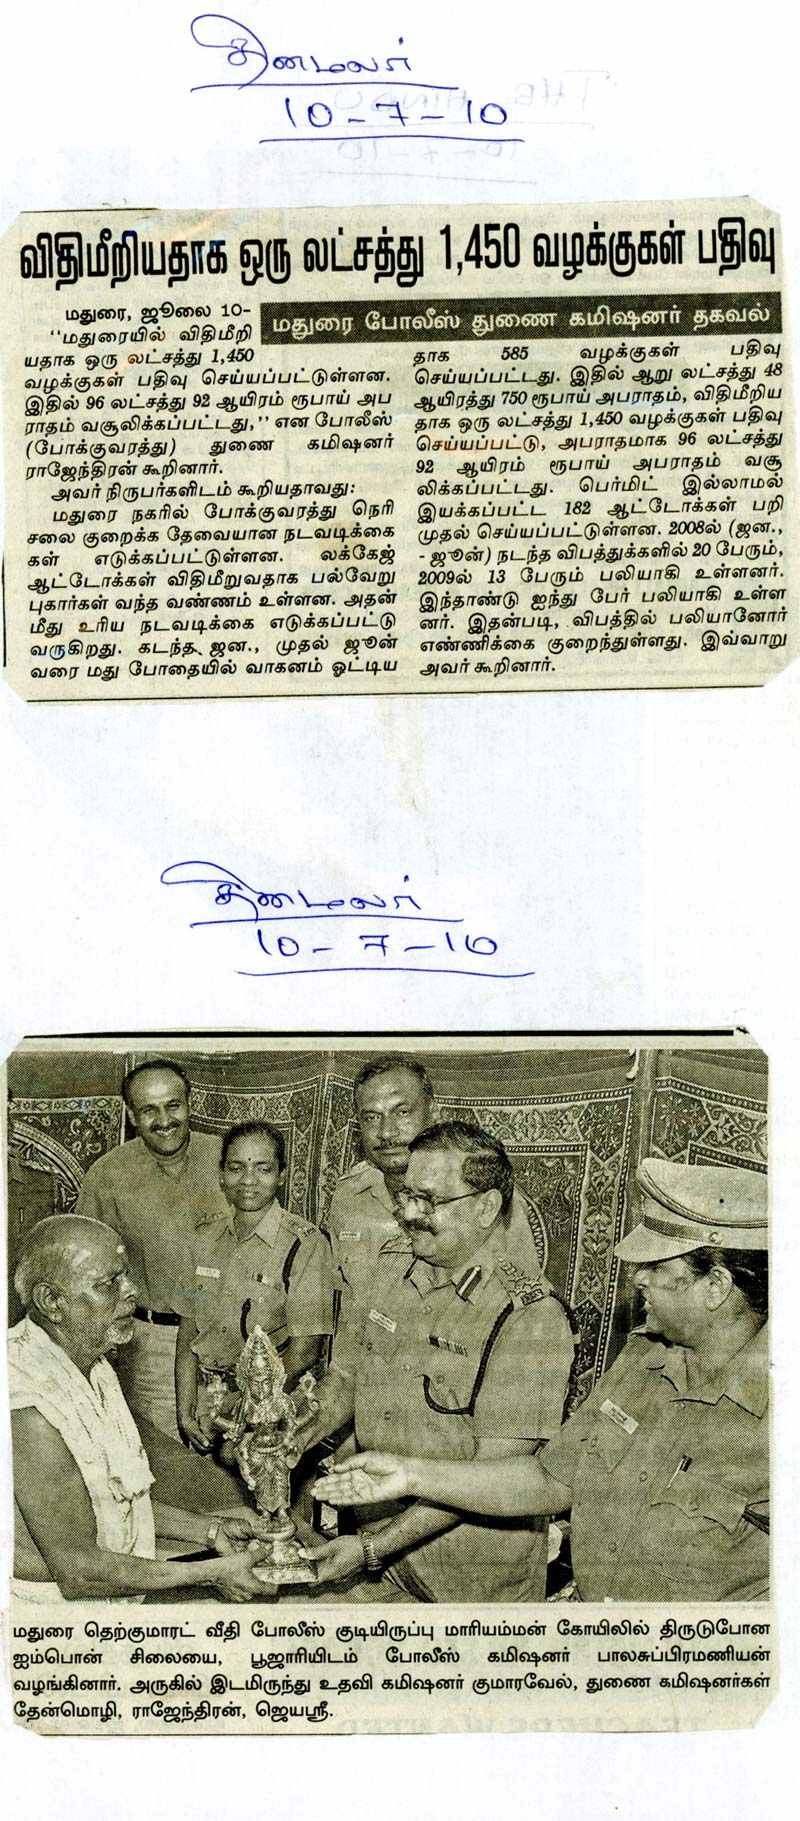 தினமலர்
10-7-10
விதிமீறியதாக ஒரு லட்சத்து 1,450 வழக்குகள் பதிவு
மதுரை போலீஸ் துணை கமிஷனர் தகவல்
மதுரை, ஜூலை 10-
"மதுரையில் விதிமீறி
யதாக ஒரு லட்சத்து 1,450
வழக்குகள் பதிவு செய்யப்பட்டுள்ளன.
இதில் 96 லட்சத்து 92 ஆயிரம் ரூபாய் அப
ராதம் வசூலிக்கப்பட்டது," என போலீஸ்
(போக்குவரத்து) துணை கமிஷனர்
ராஜேந்திரன் கூறினார்.
அவர் நிருபர்களிடம் கூறியதாவது:
மதுரை நகரில் போக்குவரத்து நெரி
சலை குறைக்க தேவையான நடவடிக்கை
கள் எடுக்கப்பட்டுள்ளன. லக்கேஜ்
ஆட்டோக்கள் விதிமீறுவதாக பல்வேறு
புகார்கள் வந்த வண்ணம் உள்ளன. அதன்
மீது உரிய நடவடிக்கை எடுக்கப்பட்டு
வருகிறது. கடந்த ஜன., முதல் ஜூன்
வரை மது போதையில் வாகனம் ஓட்டிய
தாக 585 வழக்குகள் பதிவு
செய்யப்பட்டது. இதில் ஆறு லட்சத்து 48
ஆயிரத்து 750 ரூபாய் அபராதம், விதிமீறிய
தாக ஒரு லட்சத்து 1,450 வழக்குகள் பதிவு
செய்யப்பட்டு, அபராதமாக 96 லட்சத்து
92 ஆயிரம் ரூபாய் அபராதம் வசூ
லிக்கப்பட்டது. பெர்மிட் இல்லாமல்
இயக்கப்பட்ட 182 ஆட்டோக்கள் பறி
முதல் செய்யப்பட்டுள்ளன. 2008ல் (ஜன.,
- ஜூன்) நடந்த விபத்துக்களில் 20 பேரும்,
2009ல் 13 பேரும் பலியாகி உள்ளனர்.
இந்தாண்டு ஐந்து பேர் பலியாகி உள்ள
னர். இதன்படி, விபத்தில் பலியானோர்
எண்ணிக்கை குறைந்துள்ளது. இவ்வாறு
அவர் கூறினார்.
தினமலர்
10-7-10
மதுரை தெற்குமாரட் வீதி போலீஸ் குடியிருப்பு மாரியம்மன் கோயிலில் திருடுபோன
ஐம்பொன் சிலையை, பூஜாரியிடம் போலீஸ் கமிஷனர் பாலசுப்பிரமணியன்
வழங்கினார். அருகில் இடமிருந்து உதவி கமிஷனர் குமாரவேல், துணை கமிஷனர்கள்
தேன்மொழி, ராஜேந்திரன், ஜெயஸ்ரீ.